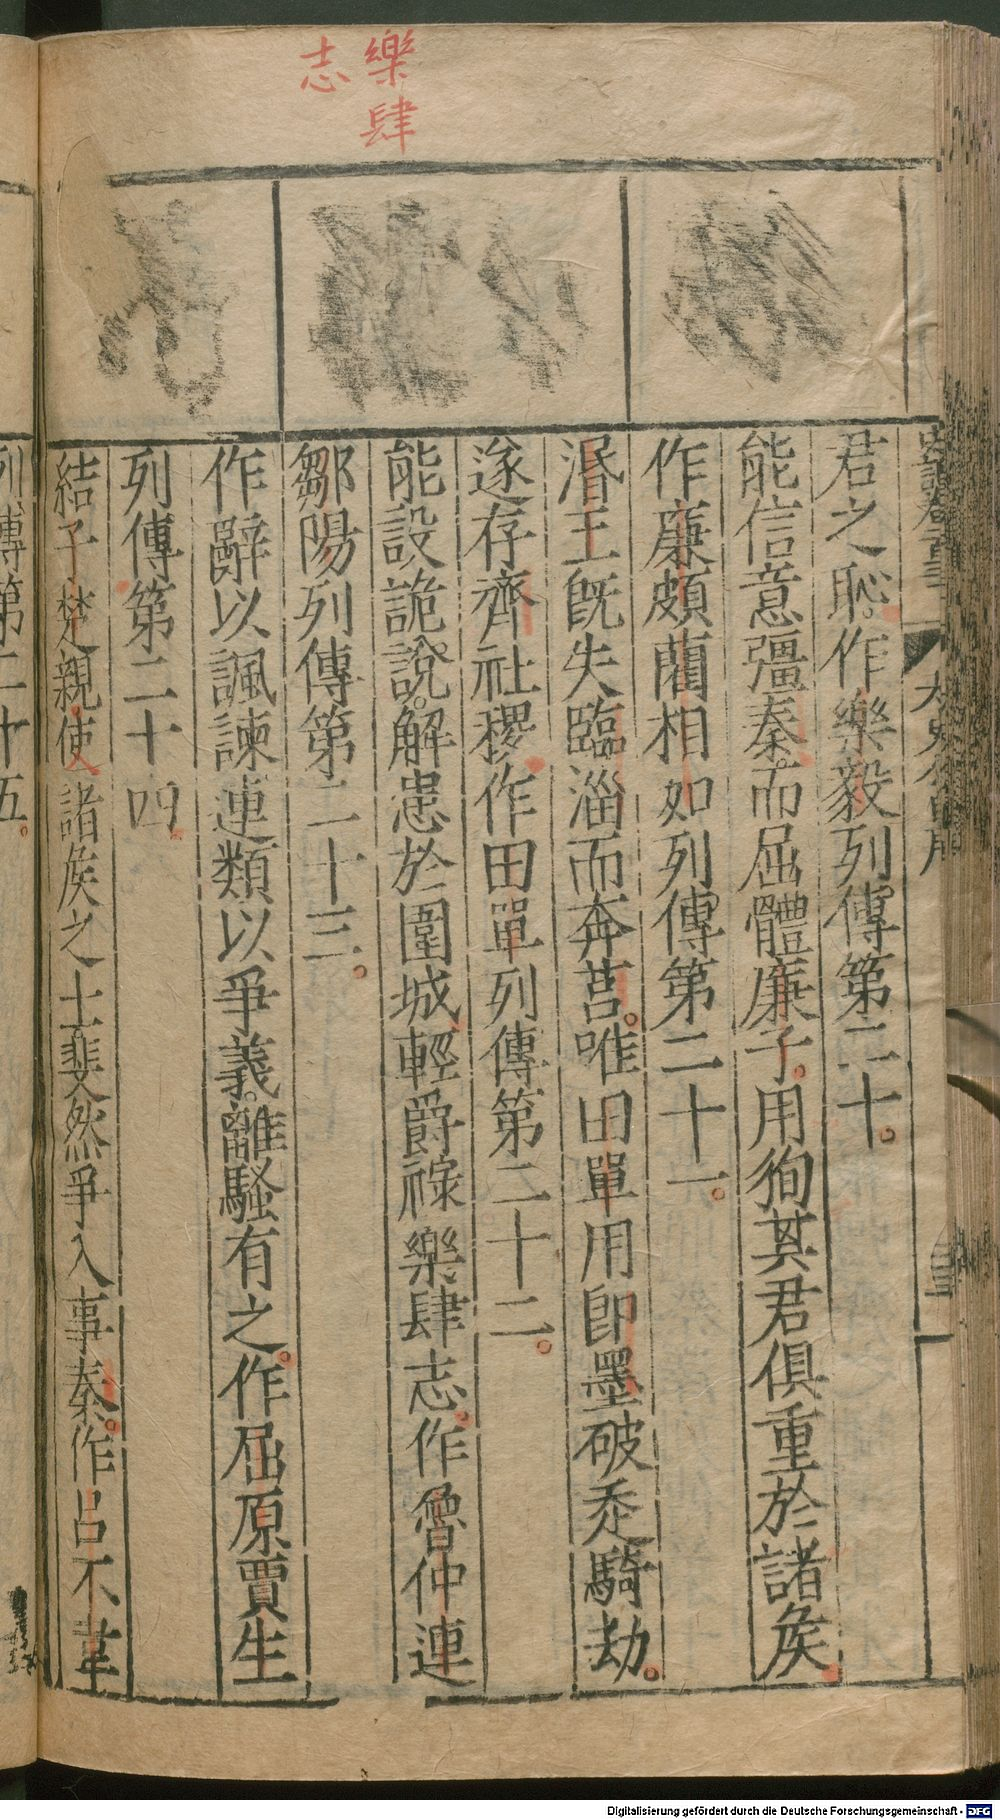 樂肆
志
君之恥作樂毅列傳第二十
能信意彊秦而屈體廉子用徇其君俱重於諸侯
作廉頗藺相如列傳第二十一
湣王旣失臨淄而奔莒唯田單用卽墨破走騎劫
遂存齊社稷作田單列傳第二十二
能設詭說解患於圍城輕爵祿樂肆志作魯仲連
鄒陽列傳第二十三
作辭以諷諫連類以爭義離騷有之作屈原賈生
列傳第二十四
結子楚親使諸侯之士斐然爭入事秦作呂不韋
列傳第二十五
Digitalisierung gefördert durch die Deutsche Forschungsgemeinschaft - DFG